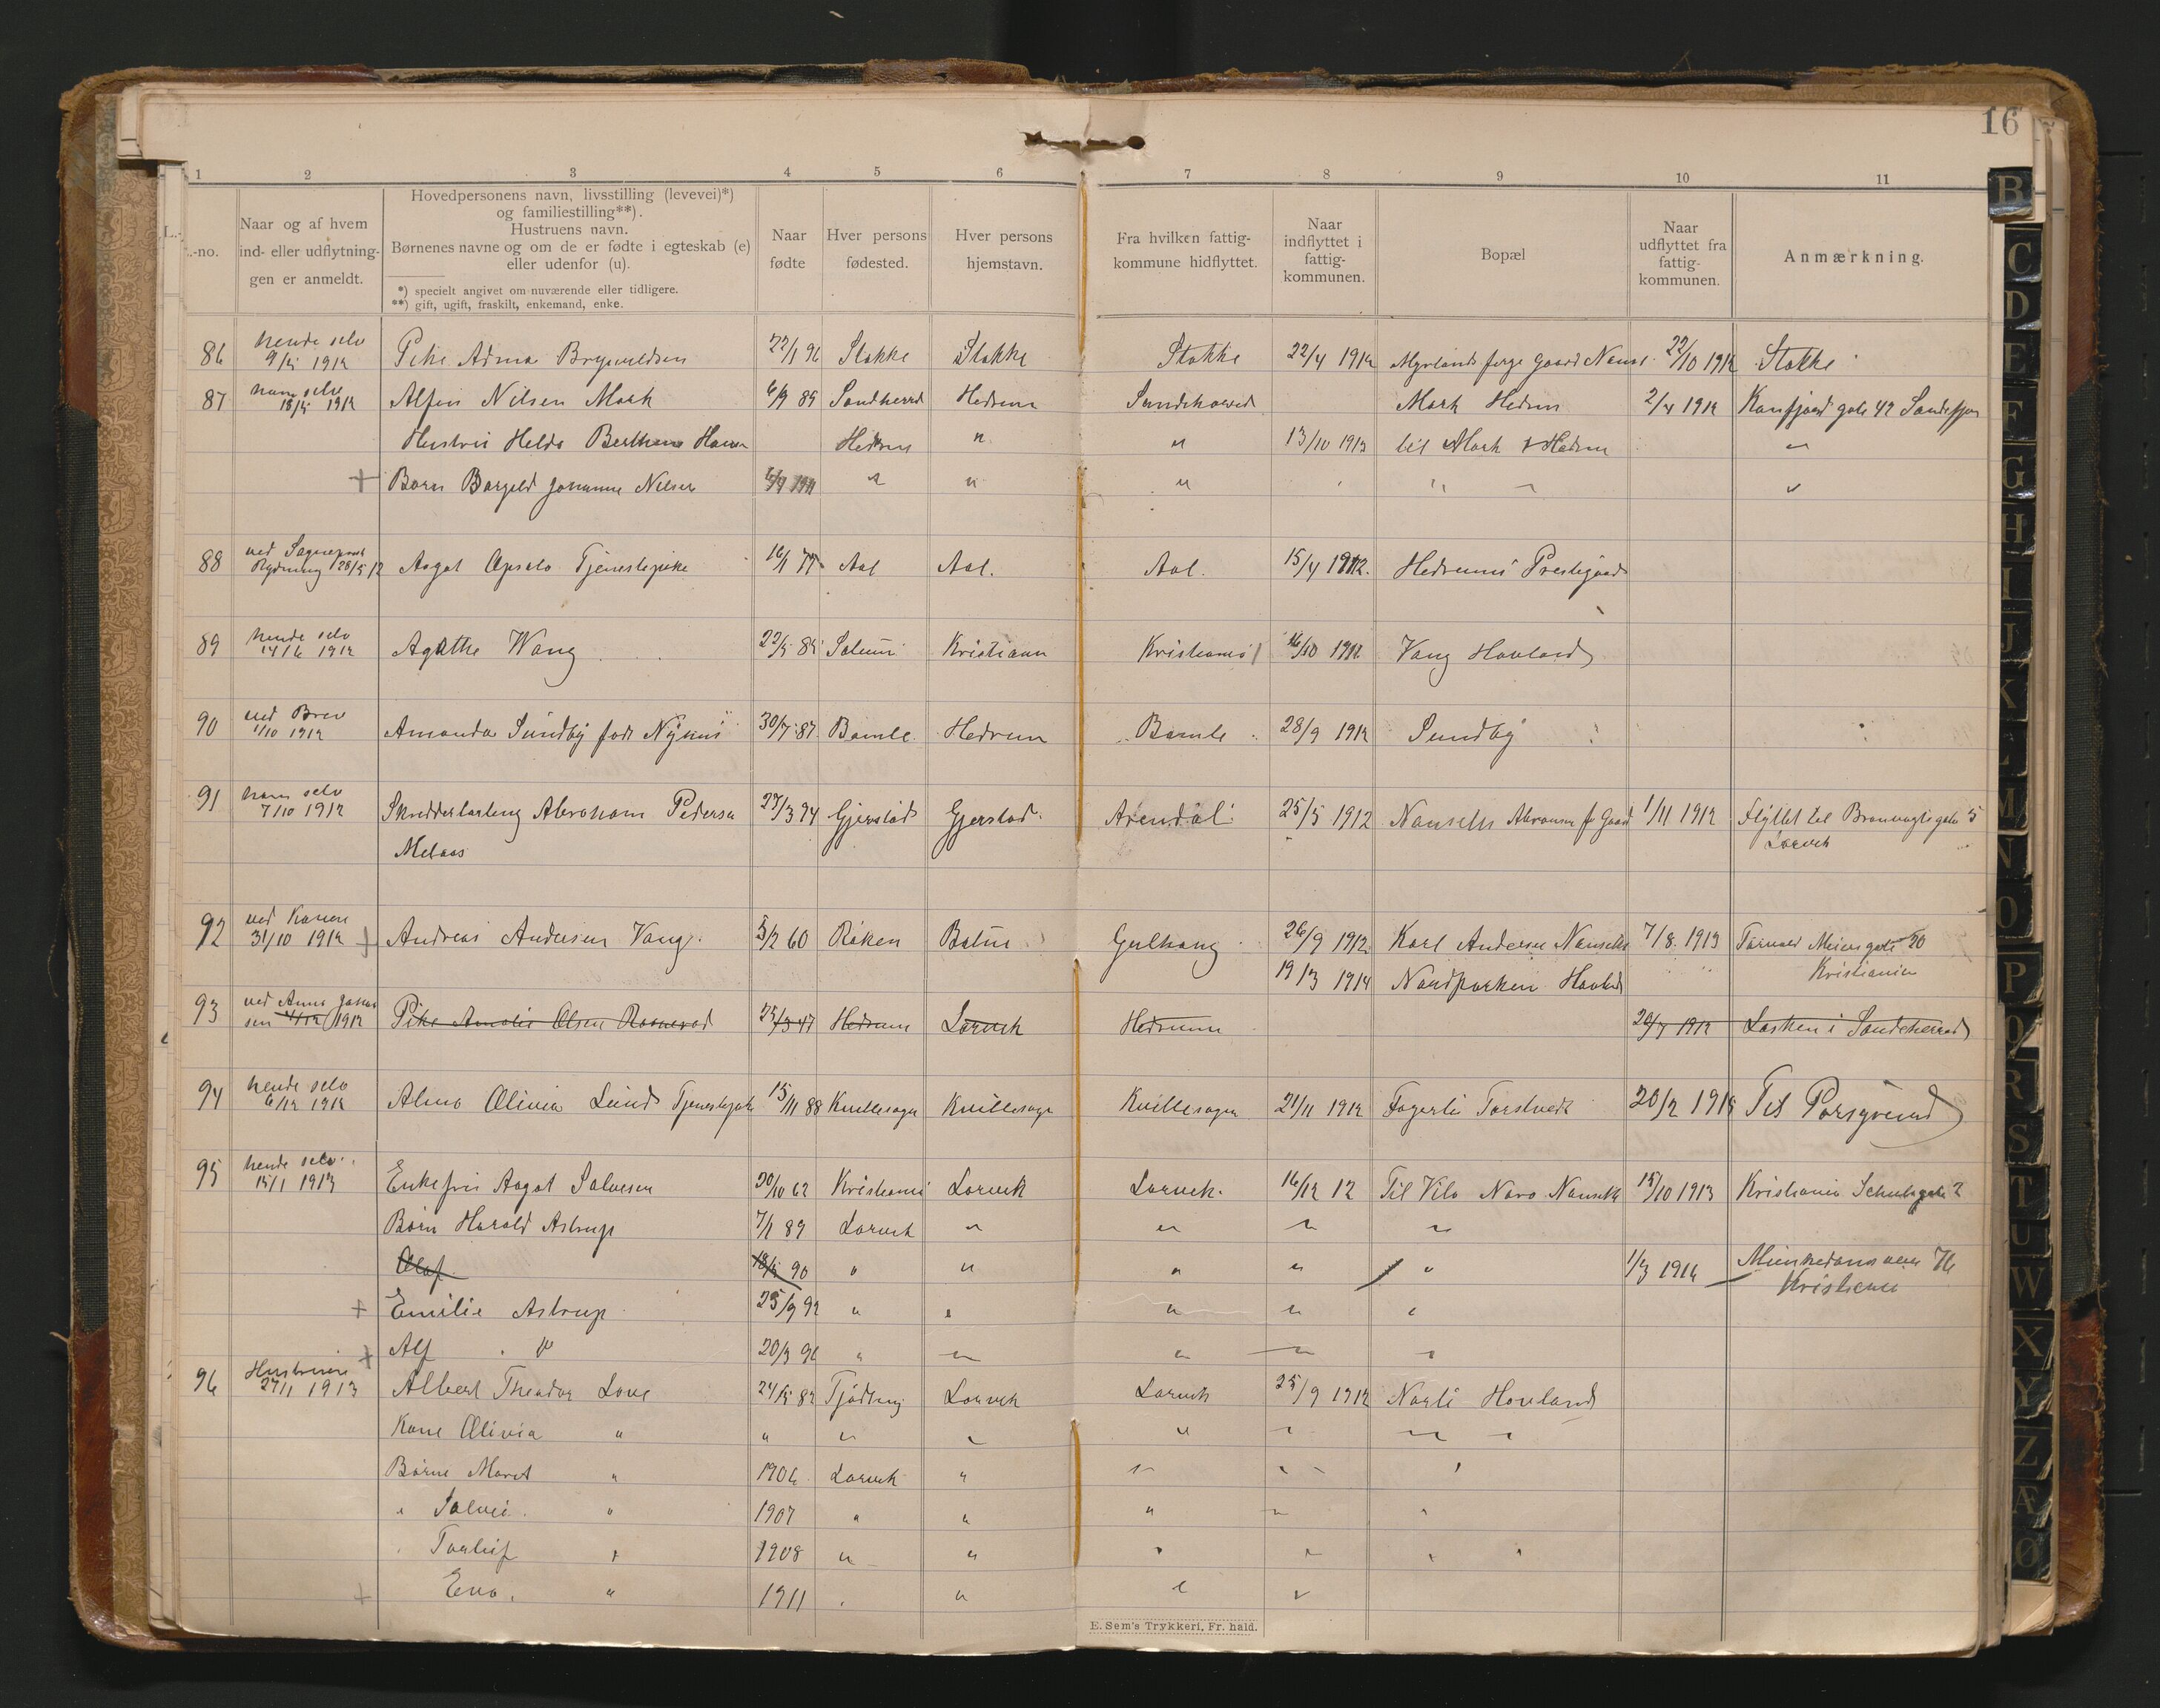 16
1 2 3 4 5 6 7 8 9 10 11
L.-no.
Naar og af hvem
ind- eller udflytnin-
gen er anmeldt.
Hovedpersonens navn, livsstilling (levevei)*)
og familiestilling**).
Hustruens navn.
Børnenes navne og om de er fødte i egteskab (e)
eller udenfor (u).
*) specielt angivet om nuværende eller tidligere.
**) gift, ugift, fraskilt, enkemand, enke.
Naar
fødte
Hver persons
fødested.
Hver persons
hjemstavn.
Fra hvilken fattig-
kommune hidflyttet.
Naar
indflyttet i
fattig-
kommunen.
Bopæl
Naar
udflyttet fra
fattig-
kommunen.
Anmærkning.
86 hende selv 9/5 1912 Pike Adma 22/1 96 Stokke Stokke Stokke 22/4 1912 Gaard 22/10 1912 Stokke
87 ham selv 18/5 1912 Alfen Nilsen Mork 6/9 89 Sandherred Hedrum Sandeherred Mork Hedrum 2/4 1912 gate 42
Hustru Helda Hedrum " " 13/10 1913 til Mork Hedrum "
+ Barn Borgeld Johanne Nilsen " " " " "
88 ved 28/5 12 Aagot Opsalo Tjenestepike 16/1 77 Aal Aal. Aal. 15/4 1912. Hedrums Prestegaard
89 hende selv 14/6 1912 Agathe Wang 22/5 85 Solum Kristiania Kristiania 16/10 1912 Vang Hovland
90 ved Brev 1/10 1912 Amanda Sundby født 30/7 87 Bamle Hedrum Bamle 28/9 1912 Sundby
91 ham selv 7/10 1912 Skredderlærling Abraham Pedersen 27/3 94 Gjerstad Gjerstad Arendal 25/5 1912 Nanseth Gaard 1/11 1912 Flyttet til gate 5
Melaas Larvik
92 ved Konen 31/10 1912 + Andreas Andersen Vang 3/2 60 Røken 26/9 1912 Karl Andersen Nanseth 7/8 1913 Meiersgate 20
19/3 1914 Hovland Kristiania
93 ved Anna 1912 Pike Amalie Olsen 25/3 47 Hedrum Larvik Hedrum 20/7 1912 i Sandeherred
94 hende selv 6/12 1912 Alma Olivia Lund Tjenestepike 15/11 88 Kvillesogn Kvillesogn Kvillesogn 21/11 1912 Fagerli Torstvedt 20/2 Til Porsgrund
95 hende selv 15/1 1913 Enkefru Aagot Salvesen 20/10 62 Kristiania Larvik Larvik. 16/12 12 Til Vila Nanseth 15/10 1913 Kristiania Schultzgate 2
Børn Harald Astrup 7/1 89 Larvik " " " "
Olaf 18/5 90 " " " " " 1/3 1914 Munkedamsveien 76
Kristiania
+ Emilie Astrup 25/9 92 " " " " "
+ Alf " 20/3 96 " " " " "
96 Hustruen 27/1 1913 Albert Theodor Love 24/5 82 Tjødling Larvik Larvik 25/9 1912 Narli Hovland
Kone Olivia " " " " " " " "
Børn Marit " 1906 Larvik " " " "
" Solvei " 1907 " " " " "
" Torleif " 1908 " " " " " "
+ Eva " 1911 " " " "
E. Sem's Trykkeri, Fr. hald.
B
C
D
E
F
G
H
I
J
K
L
M
N
O
P
Q
R
S
T
U
W
X
Y
Z
Æ
Ø